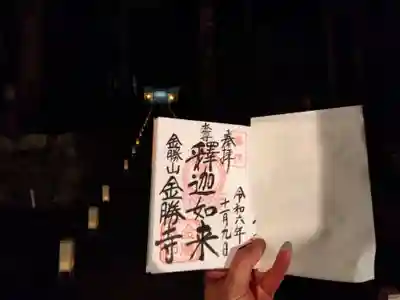 奉拝
令和六年
十一月九日
釋迦如来
金勝山金勝寺